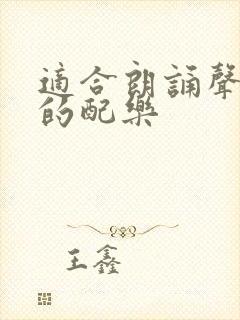 適合朗誦聲
的配樂
王鑫